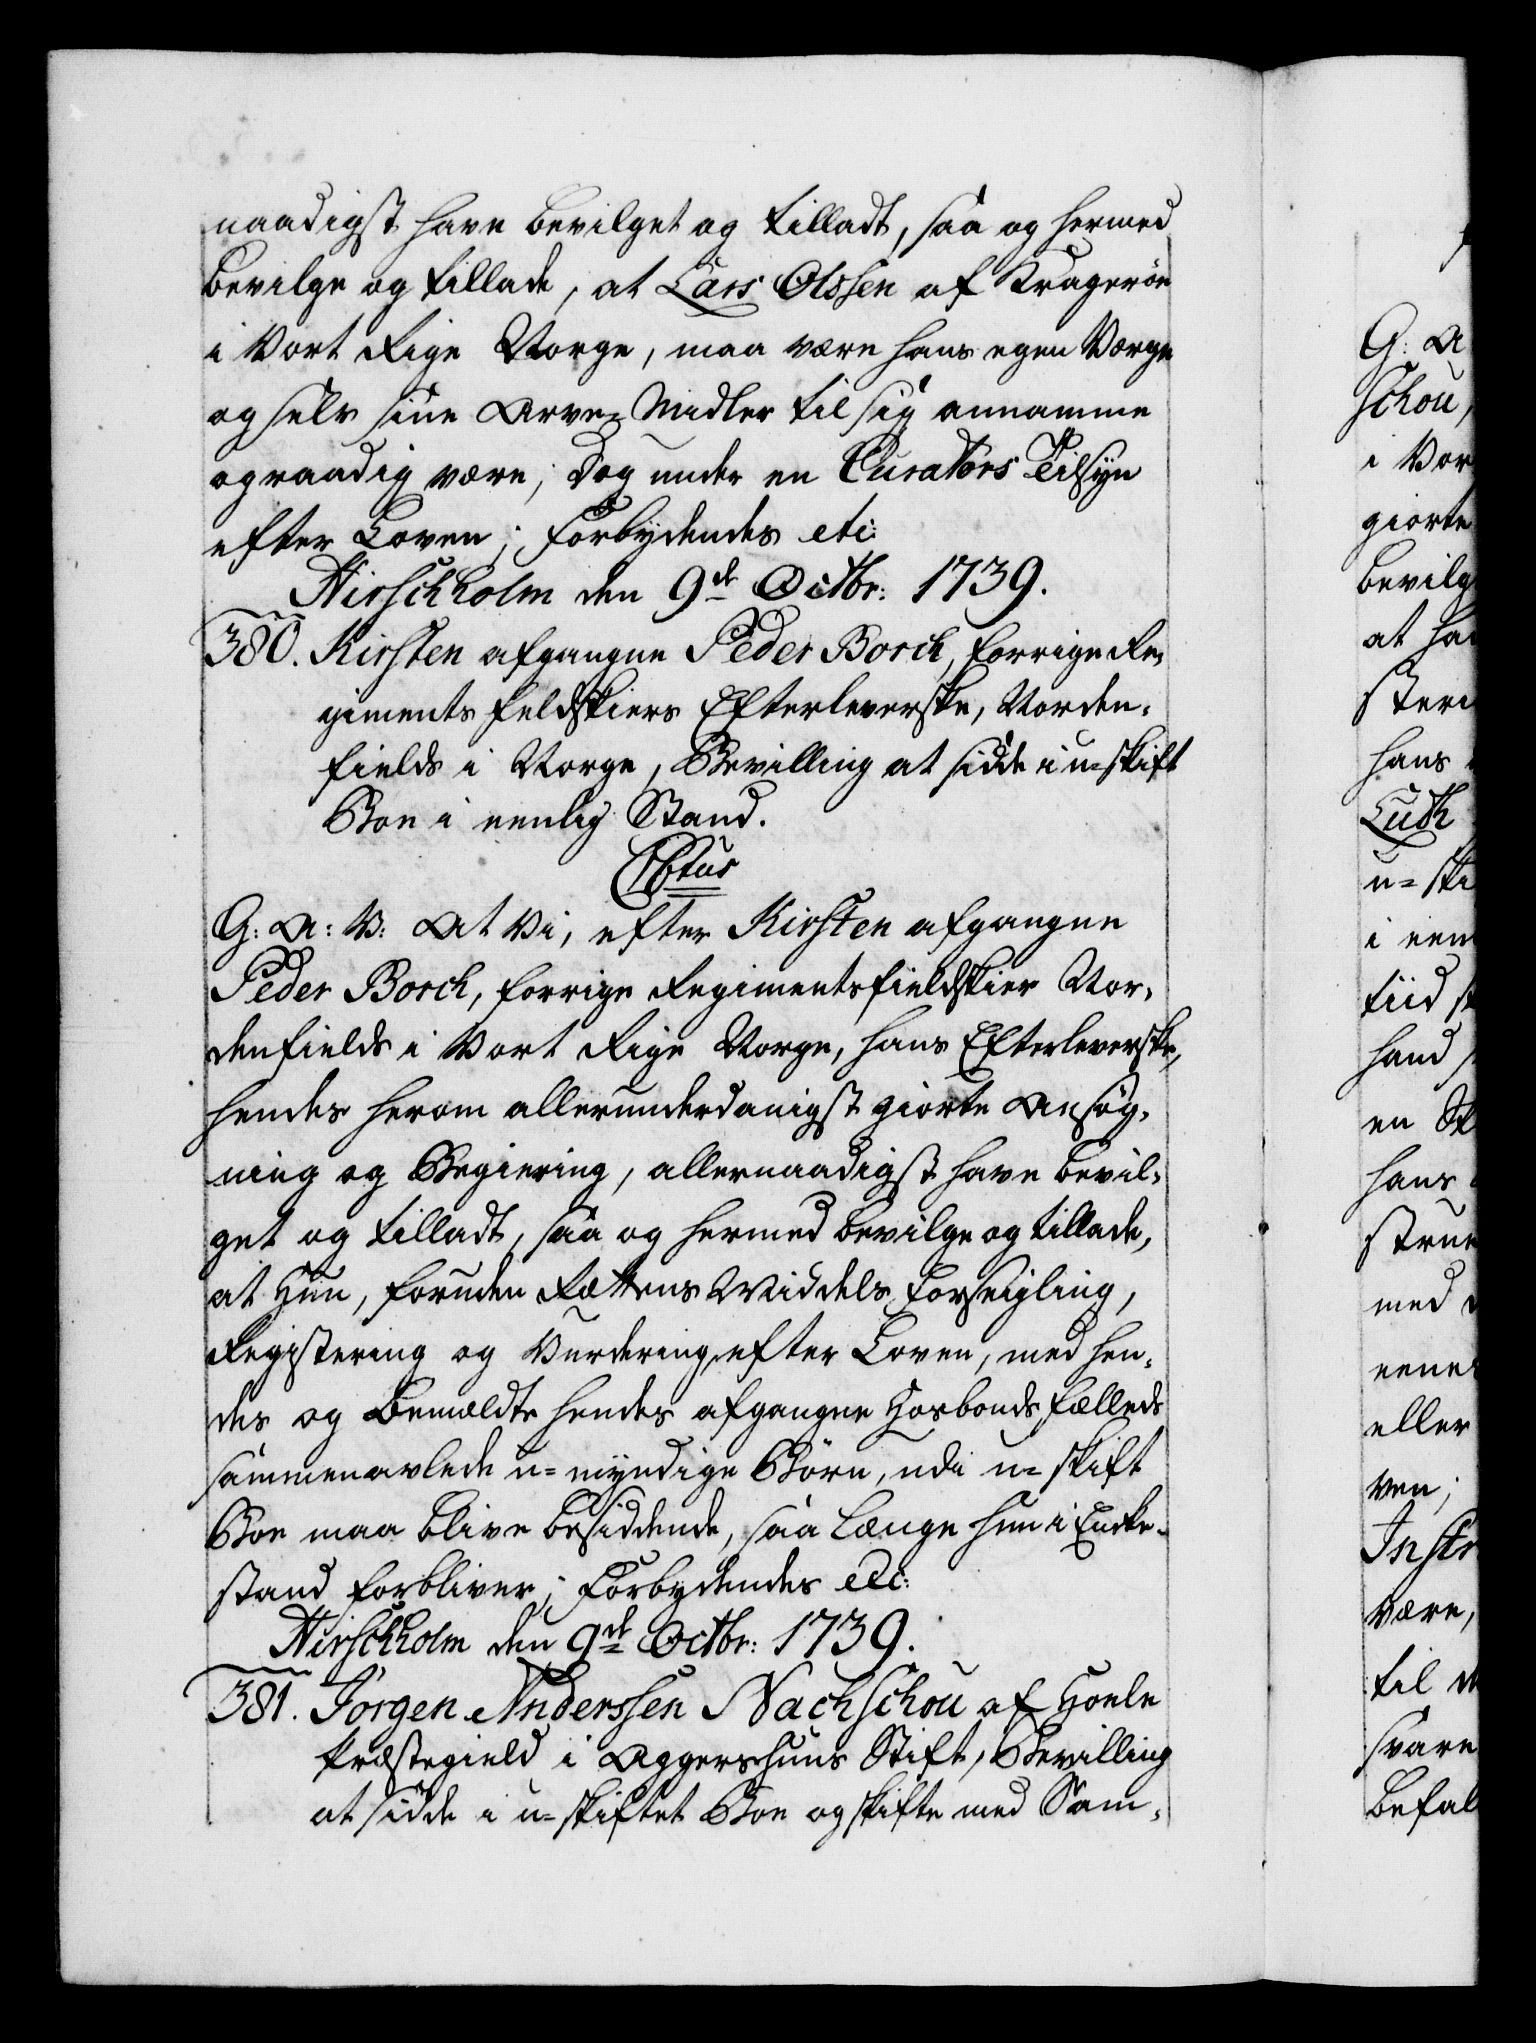 naadigst have bevilget og tilladt, saa og hermed
bevilge og tillade, at Lars Olssen af Kragerøe
i Vort Rige Norge, maa være hans egen Værge
og selv sine Arve-Midler til sig annamme
og raadig være, dog under en Curators Tilsyn
efter Loven; Forbydendes etc:
Hirschholm den 9de Octbr: 1739.
380. Kirsten afgangne Peder Borch, forrige Re-
giments feldskiers Efterleverske, Norden-
fields i Norge, Bevilling at sidde i u-skift
Boe i eenlig Stand.
G: A: V: At Vi, efter Kirsten afgangne
Peder Borch, forrige Regimentsfieldskier Nor-
denfields i Vort Rige Norge, hans Efterleverske,
hendes herom allerunderdanigst giorte Ansøg-
ning og Begiering, allernaadigst have bevil-
get og tilladt, saa og hermed bevilge og tillade,
at Hun, foruden Rættens Middels Forseigling,
Registering og Vurdering, efter Loven, med hen-
des og bemældte hendes afgangne Hosbonds fælleds
sammenavlede u-myndige Børn, udi u-skift
Boe maa blive besiddende, saa længe hun i Encke-
stand forbliver; Forbydendes etc:
Hirschholm den 9de Octbr: 1739.
381. Jørgen Anderssen Nachschou af Hoele
Præstegield i Aggershuus Stift, Bevilling
at sidde i u-skiftet Boe og skifte med Sam-
G: A
schou,
i Vor
giorte
bevilg
at ha
steri
hans
Luth
u-ski
i een
tiid
hand
en
hans
med
eller
ven;
Instr
være,
til
svare
befal